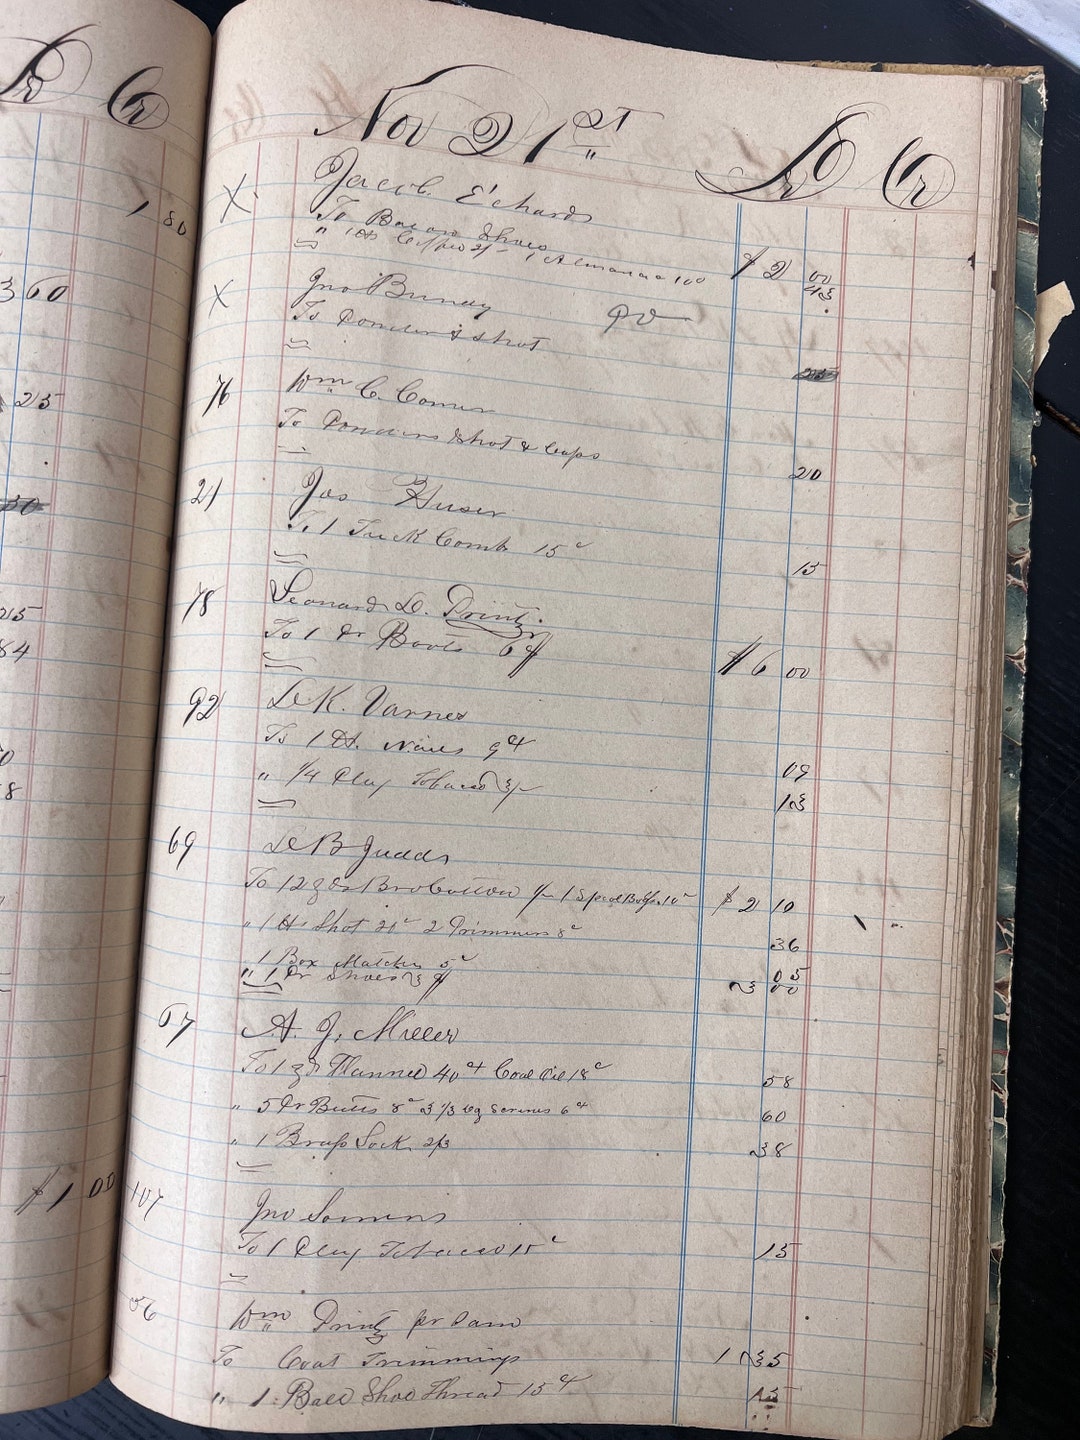 Dr Cr
1 80
3 60
25
25
84
8
$1 00
Nov 21st Dr Cr
X Jacob Echards
To Bal on Shoes $2 00
" 1 lb Coffee 2/- 1 Almanac 10c 43
X Jno Bundy Pd
To Powder & Shot 25
76 Wm C. Comer
To Powder Shot & Caps 20
21 Jos Huser
To 1 Tuck Comb 15c 15
78 Leonard D. Printz
To 1 Pr Boots 6$ $6 00
92 D K. Varnes
To 1 lb. Nails 9c 09
" 1/4 Plug Tobacco 13
69 D B Judds
To 12 yds Bro Cotton 1 Spool 10c $2 10
" 1 lb Shot 20c 2 Trimmers 8c 36
" 1 Box Matches 5c 05
" 1 Pr Shoes 3$ 3 00
67 A. J. Miller
To 1 yd Flannel 40c Coal Oil 18c 58
" 5 Pr Butts 8c 3 1/3 Dz Screws 6c 60
" 1 Brass Lock 38
107 Jno Somers
To 1 Plug Tobacco 15c 15
56 Wm Printz pr Sam
To Coat Trimmings 1 35
" 1 Ball Shoe Thread 15c 15